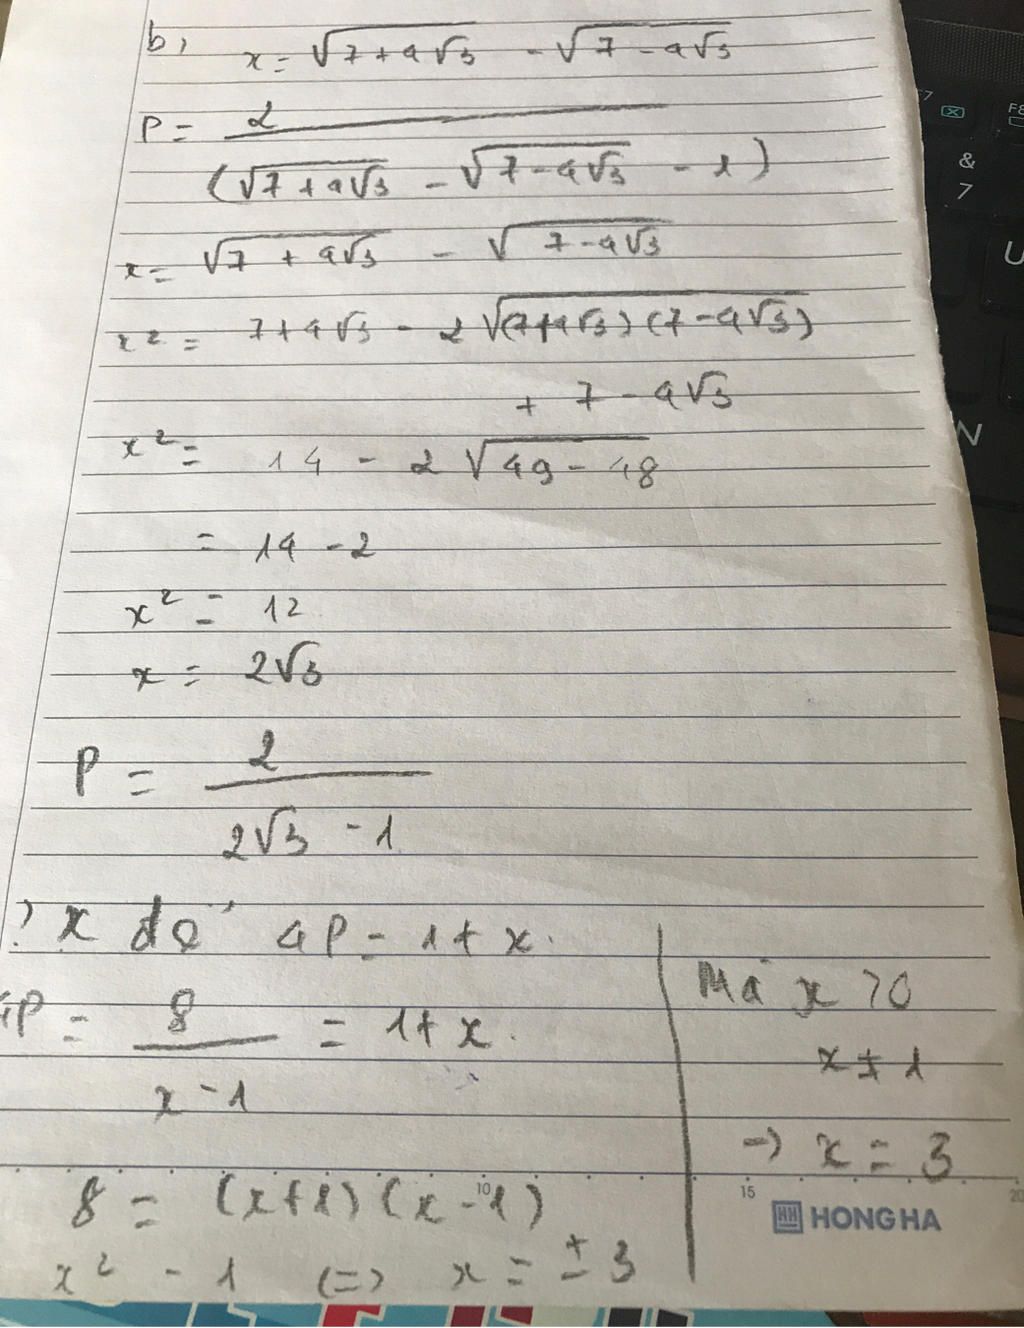 b, x = √7+4√3 - √7-4√3
P = 2 / (√7+4√3 - √7-4√3 - 1)
x = √7+4√3 - √7-4√3
x² = 7+4√3 - 2√(7+4√3)(7-4√3)
+ 7-4√3
x² = 14 - 2√49-48
= 14-2
x² = 12
x = 2√3
P = 2 / 2√3 - 1
x để 4P = 1+x.
4P = 8 / x-1 = 1+x.
8 = (x+1)(x-1)
x² - 1 (=) x = ± 3
Mà x >0
x ≠ 1
-) x = 3
F7
F8
&
7
U
N
10
15
20
HH HONG HA